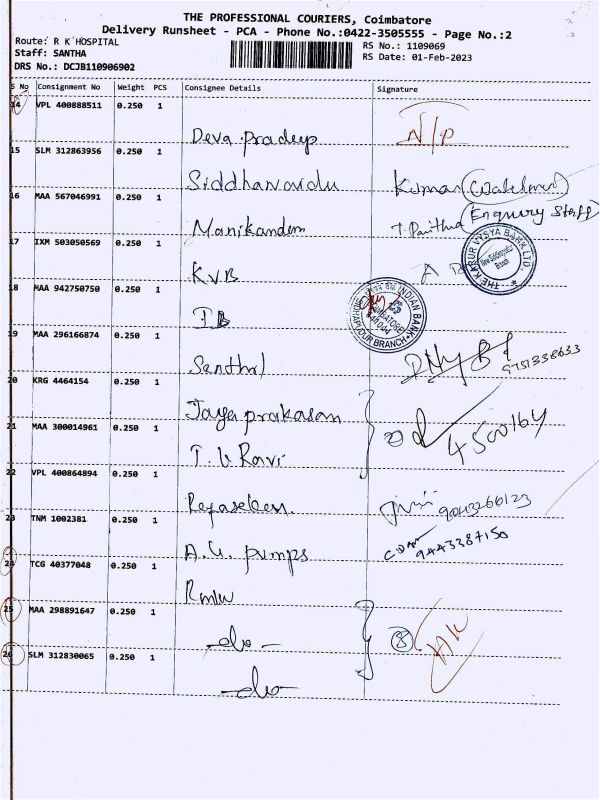 THE PROFESSIONAL COURIERS, Coimbatore
Delivery Runsheet - PCA - Phone No.:0422-3505555 - Page No.:2
Route: R K HOSPITAL
RS No.: 1109069
Staff: SANTHA
RS Date: 01-Feb-2023
DRS No.: DCJB110906902
S No Consignment No Weight PCS Consignee Details Signature
14 VPL 400888511 0.250 1
Deva pradeep N/P
15 SLM 312863956 0.250 1
Siddhanaidu Kumar
16 MAA 567046991 0.250 1
Manikandan (Enquiry Staff)
17 IXM 503050569 0.250 1
KVB
THE KARUR VYSYA BANK LTD.
Branch
18 MAA 942750750 0.250 1
IB
INDIAN BANK
BRANCH
19 MAA 296166874 0.250 1
Senthil
20 KRG 4464154 0.250 1
Jaya prakasan
4500164
21 MAA 300014961 0.250 1
T.V Ravi
22 VPL 400864894 0.250 1
9043260123
23 TNM 1002381 0.250 1
A.V. pumps 9443387150
24 TCG 40377048 0.250 1
25 MAA 298891647 0.250 1
-do-
26 SLM 312830065 0.250 1
-do-